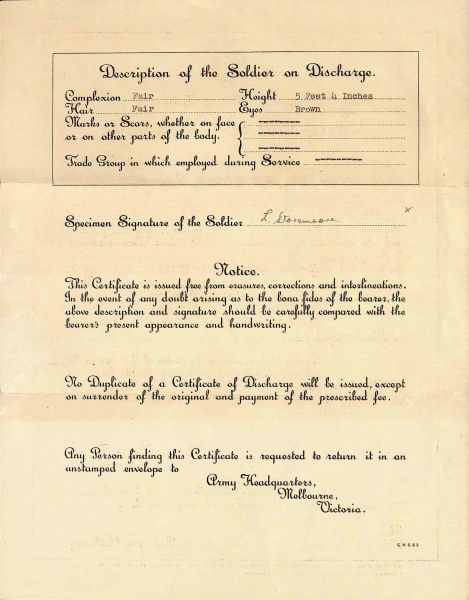 Description of the Soldier on Discharge.
Complexion Fair Height 5 Feet 4 Inches
Hair Fair Eyes Brown
Marks or Scars, whether on face
or on other parts of the body.
Trade Group in which employed during Service
Specimen Signature of the Soldier L x
Notice.
This Certificate is issued free from erasures, corrections and interlineations.
In the event of any doubt arising as to the bona fides of the bearer, the
above description and signature should be carefully compared with the
bearer's present appearance and handwriting.
No Duplicate of a Certificate of Discharge will be issued, except
on surrender of the original and payment of the prescribed fee.
Any Person finding this Certificate is requested to return it in an
unstamped envelope to
Army Headquarters,
Melbourne,
Victoria.